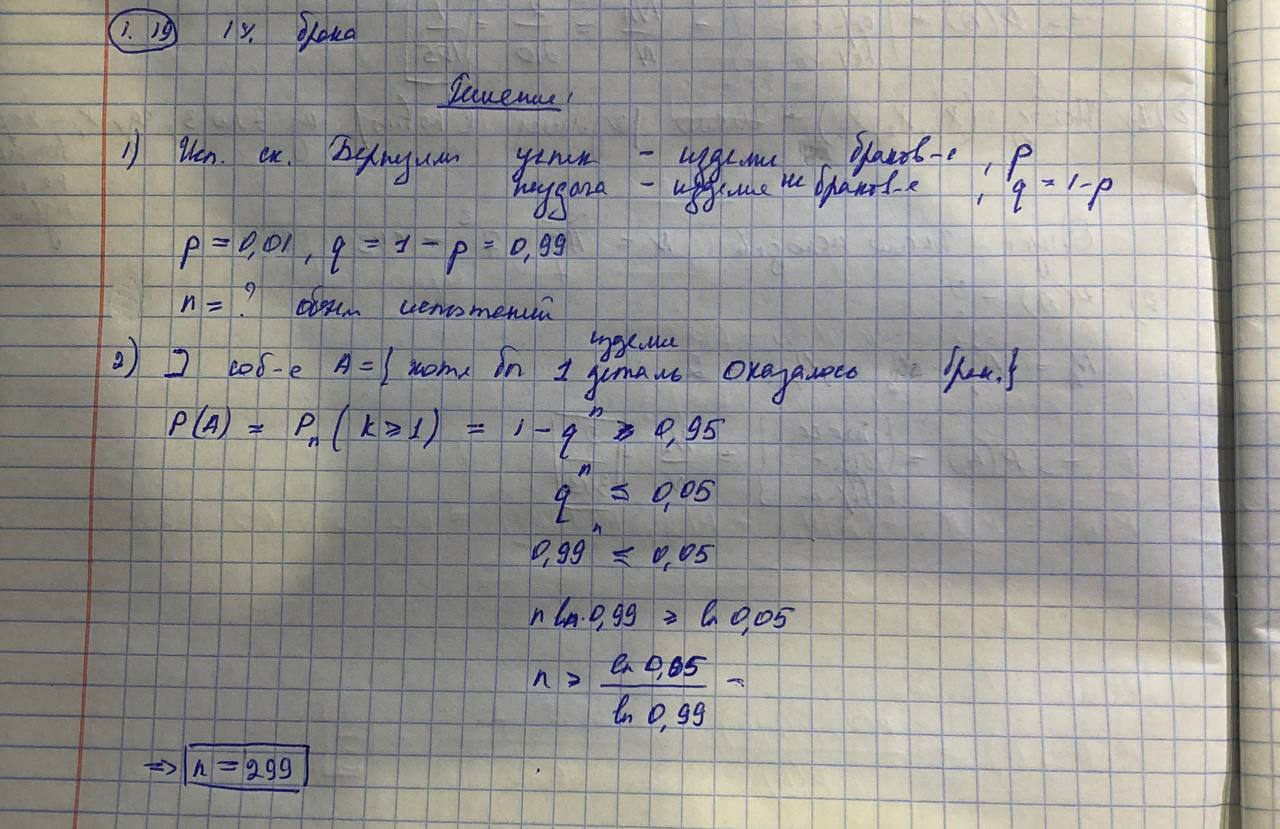 1.19 1% брака
Решение:
1) Исп. сх. Бернулли успех - изделие браков-е, p
неудача - изделие не браков-е, q = 1-p
p = 0,01, q = 1 - p = 0,99
n = ? общ испытаний
изделие
2) ] соб-е A = { хотя бы 1 деталь оказалось брак. }
P(A) = Pₙ(k ⩾ 1) = 1 - qⁿ ⩾ 0,95
qⁿ ⩽ 0,05
0,99ⁿ ⩽ 0,05
n ln 0,99 ⩾ ln 0,05
n ⩾ ln 0,05 / ln 0,99 =
=> n = 299